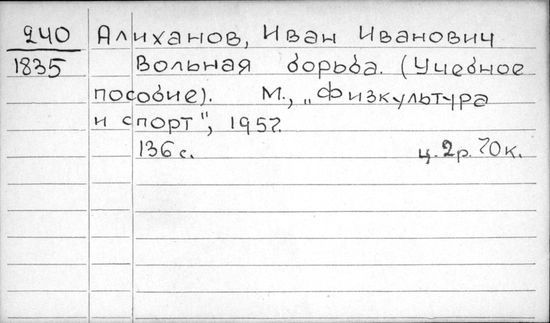 240 Алиханов, Иван Иванович
1835 Вольная борьба. (Учебное
пособие). М., „Физкультура
и спорт", 1957.
136 с. ц. 2 р. 70 к.